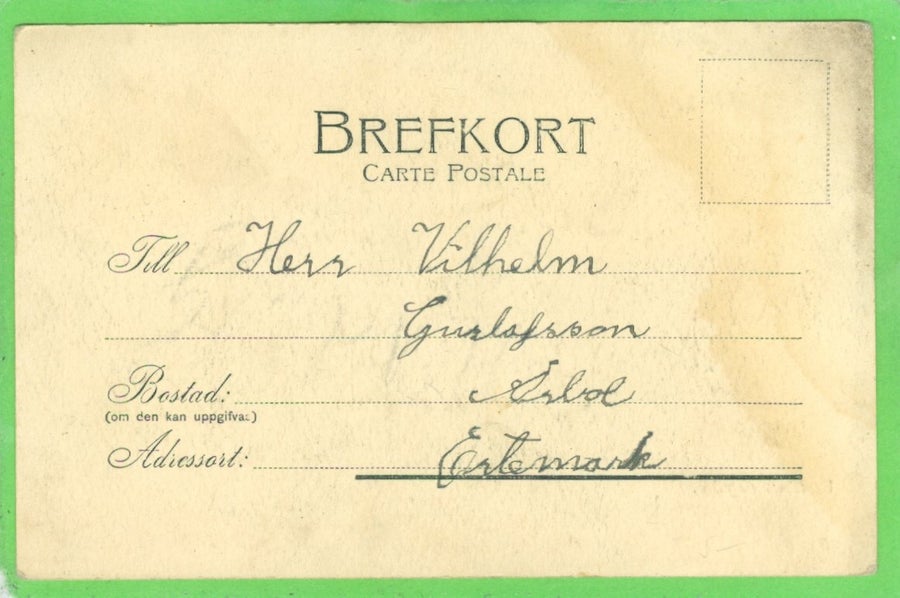 BREFKORT
CARTE POSTALE
Till Herr Vilhelm
Gustafsson
Bostad: Årbol
(om den kan uppgifvas)
Adressort: Ertemark